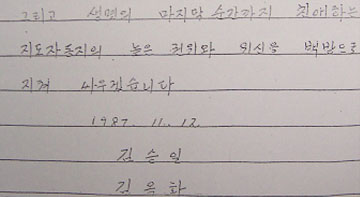 그리고 생명의 마지막 순간까지 친애하는
지도자동지의 높은 권위와 위신을 백방으로
지켜 싸우겠습니다
1987. 11. 12
김승일
김옥화